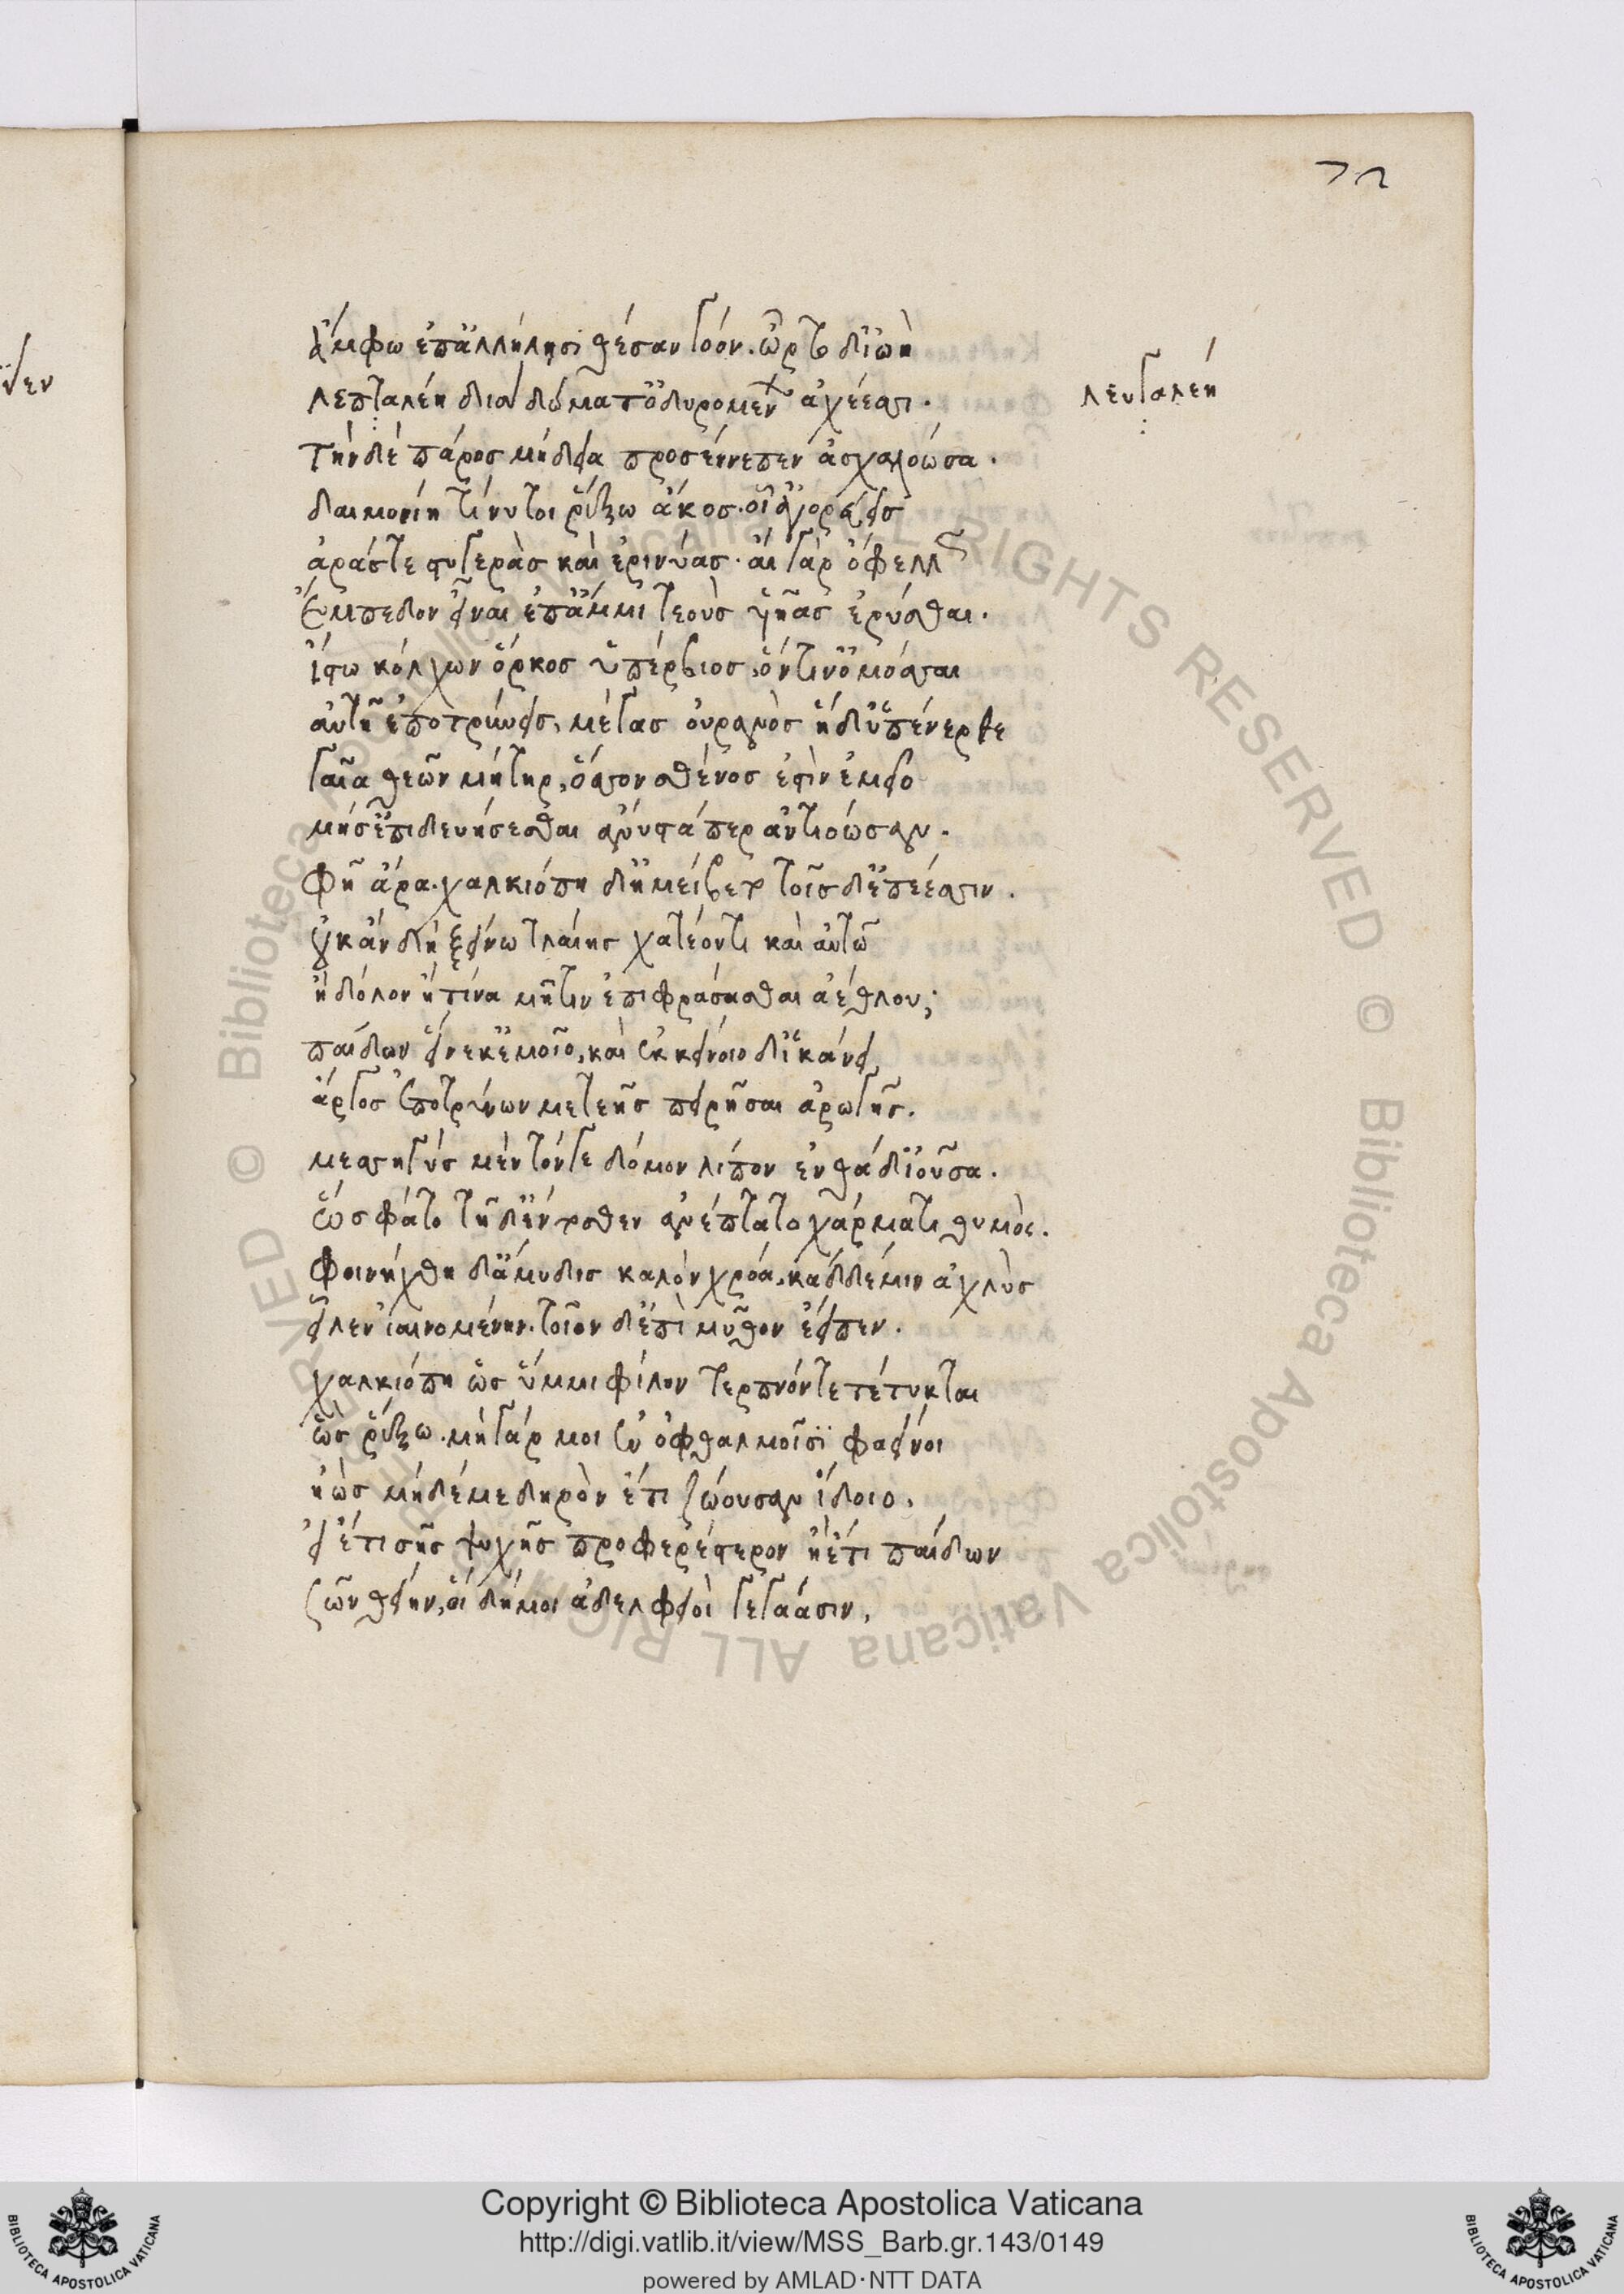 72
ἄμφω ἐπ' ἀλλήλῃσι θέσαν γόον. ὦρτο δ' ἰωὴ
λεπταλέη διὰ δώματ' ὀδυρομένων ἀχέεσσι. λευγαλέη
τὴν δὲ πάρος μήδεια προσέννεπεν ἀσχαλόωσα.
δαιμονίη τί νύ τοι ῥέξω ἄκος. οἷ' ἀγορεύεις
ἀράς τε στυγερὰς καὶ ἐρινύας. αἲ γὰρ ὄφελλεν
ἔμπεδον εἶναι ἐπ' ἄμμι τεοὺς υἱῆας ἔρυσθαι.
ἴστω κόλχων ὅρκος ὑπέρβιος, ὅντιν' ὀμόσσαι
αὐτὴ ἐποτρύνεις, μέγας οὐρανὸς ἡδ' ὑπένερθε
γαῖα θεῶν μήτηρ, ὅσσον σθένος ἐστὶν ἐμεῖο
μή σ' ἐπιδευήσεσθαι ἀνυστά περ ἀντιόωσαν.
φῆ ἄρα. χαλκιόπη δ' ἠμείβετο τοῖσδ' ἐπέεσσιν.
οὐκ ἂν δὴ ξείνω τλαίης χατέοντι καὶ αὐτῶ
ἢ δόλον ἤ τινα μῆτιν ἐπιφράσσασθαι ἀέθλου;
παίδων εἵνεκ' ἐμοῖο, καὶ ἐκ κείνοιο δ' ἱκάνει
ἄργος ἐποτρύνων με τεῆς πειρῆσαι ἀρωγῆς.
μεσσηγὺς μὲν τόνγε δόμον λίπον ἐνθάδ' ἰοῦσα.
ὣς φάτο τῇ δ' ἔντοσθεν ἀνέπτατο χάρματι θυμός.
φοινίχθη δ' ἄμυδις καλὸν χρόα, κὰδ δέ μιν ἀχλὺς
εἷλεν ἰαινομένην. τοῖον δ' ἐπὶ μῦθον ἔειπεν.
χαλκιόπη ὡς ὔμμι φίλον τερπνόν τε τέτυκται
ὣς ῥέξω. μὴ γάρ μοι ἐν ὀφθαλμοῖσι φαείνοι
ἠὼς μηδέ με δηρὸν ἔτι ζώουσαν ἴδοιο,
εἰ ἔτι σῆς ψυχῆς προφερέστερον ἠὲ τι παίδων
σῶν θείην, οἳ δή μοι ἀδελφειοὶ γεγάασιν,
Copyright © Biblioteca Apostolica Vaticana
http://digi.vatlib.it/view/MSS_Barb.gr.143/0149
powered by AMLAD·NTT DATA